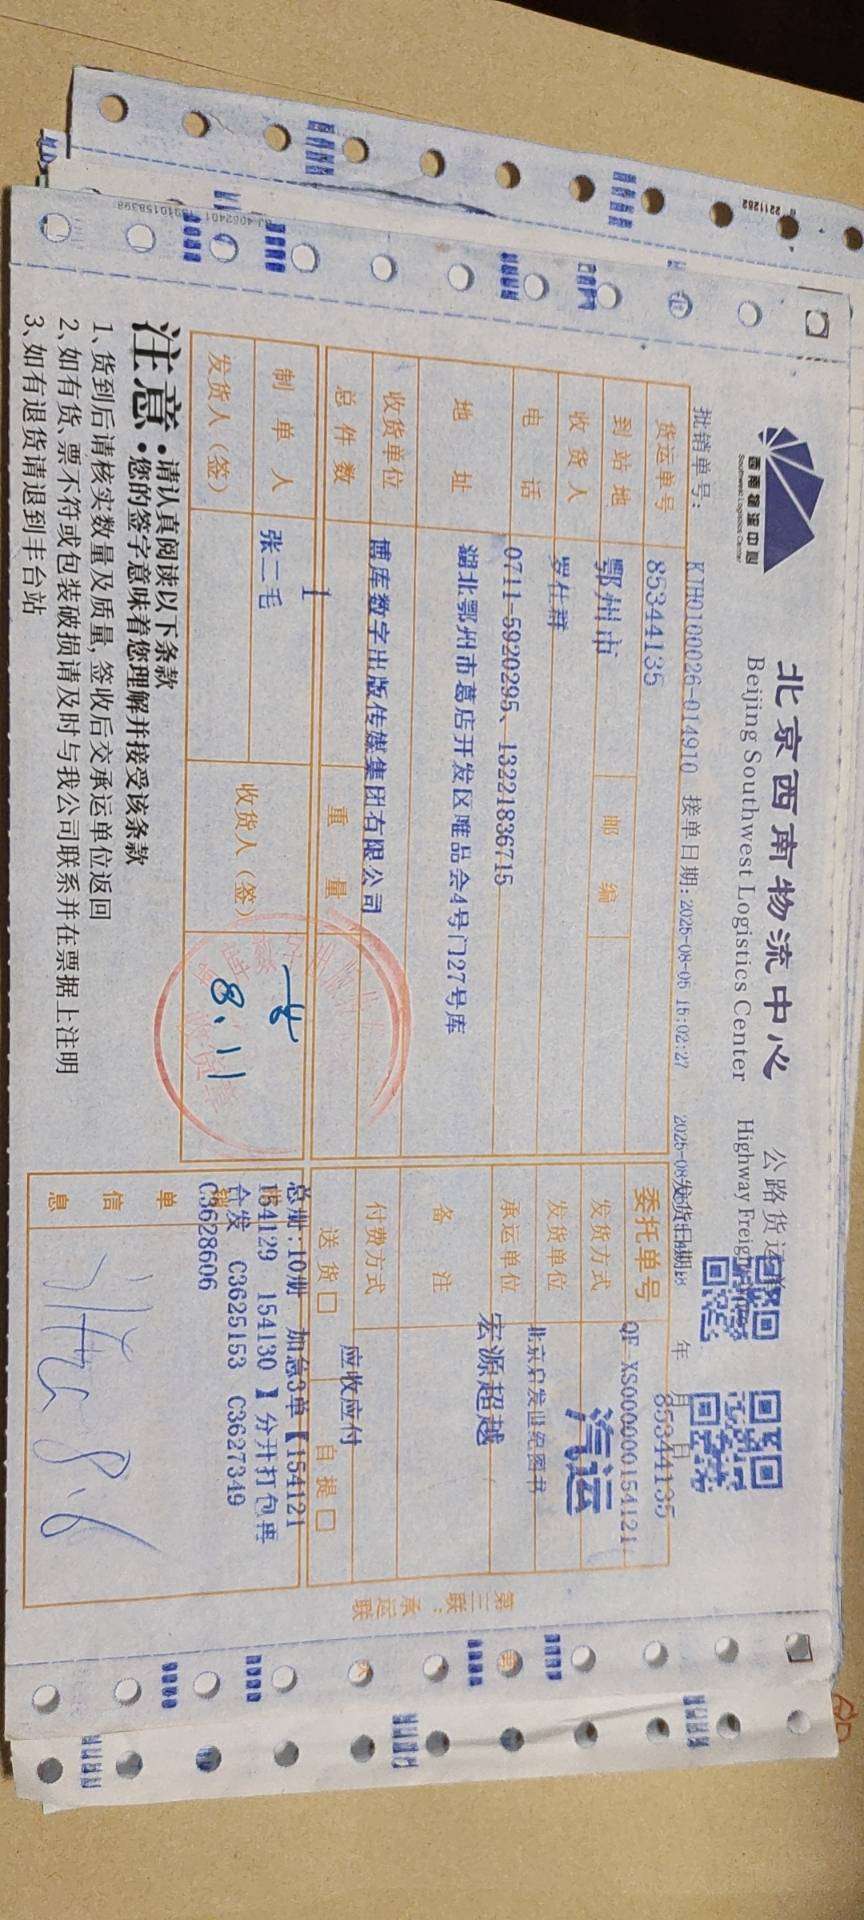 西南物流中心
Southwest Logistics Center
北京西南物流中心 公路货运单
Beijing Southwest Logistics Center Highway Freight
批销单号: KJH0100026-014910 接单日期: 2025-08-05 15:02:27
发货日期: 年 月 日
货运单号 85344135
委托单号 QF-XS0000000154121
85344135
到站地 鄂州市 邮编
发货方式 汽运
收货人 罗仕群
发货单位 北京启发世纪图书
电话 0711-5920295、13221836715
承运单位 宏源超越
地址 湖北鄂州市葛店开发区唯品会4号门27号库
备注
收货单位 博库数字出版传媒集团有限公司
付费方式 应收应付
总件数 1 重量
送货□ 自提□
制单人 张二毛
发货人(签) 收货人(签)
8.11
单信息
总册:10册 加急3单【154121
154129 154130 】分开打包再
合发 C3625153 C3627349
C3628606
8.6
第三联:承运联
注意:
·请认真阅读以下条款
·您的签字意味着您理解并接受该条款
1、货到后请核实数量及质量,签收后交承运单位返回
2、如有货、票不符或包装破损请及时与我公司联系并在票据上注明
3、如有退货请退到丰台站